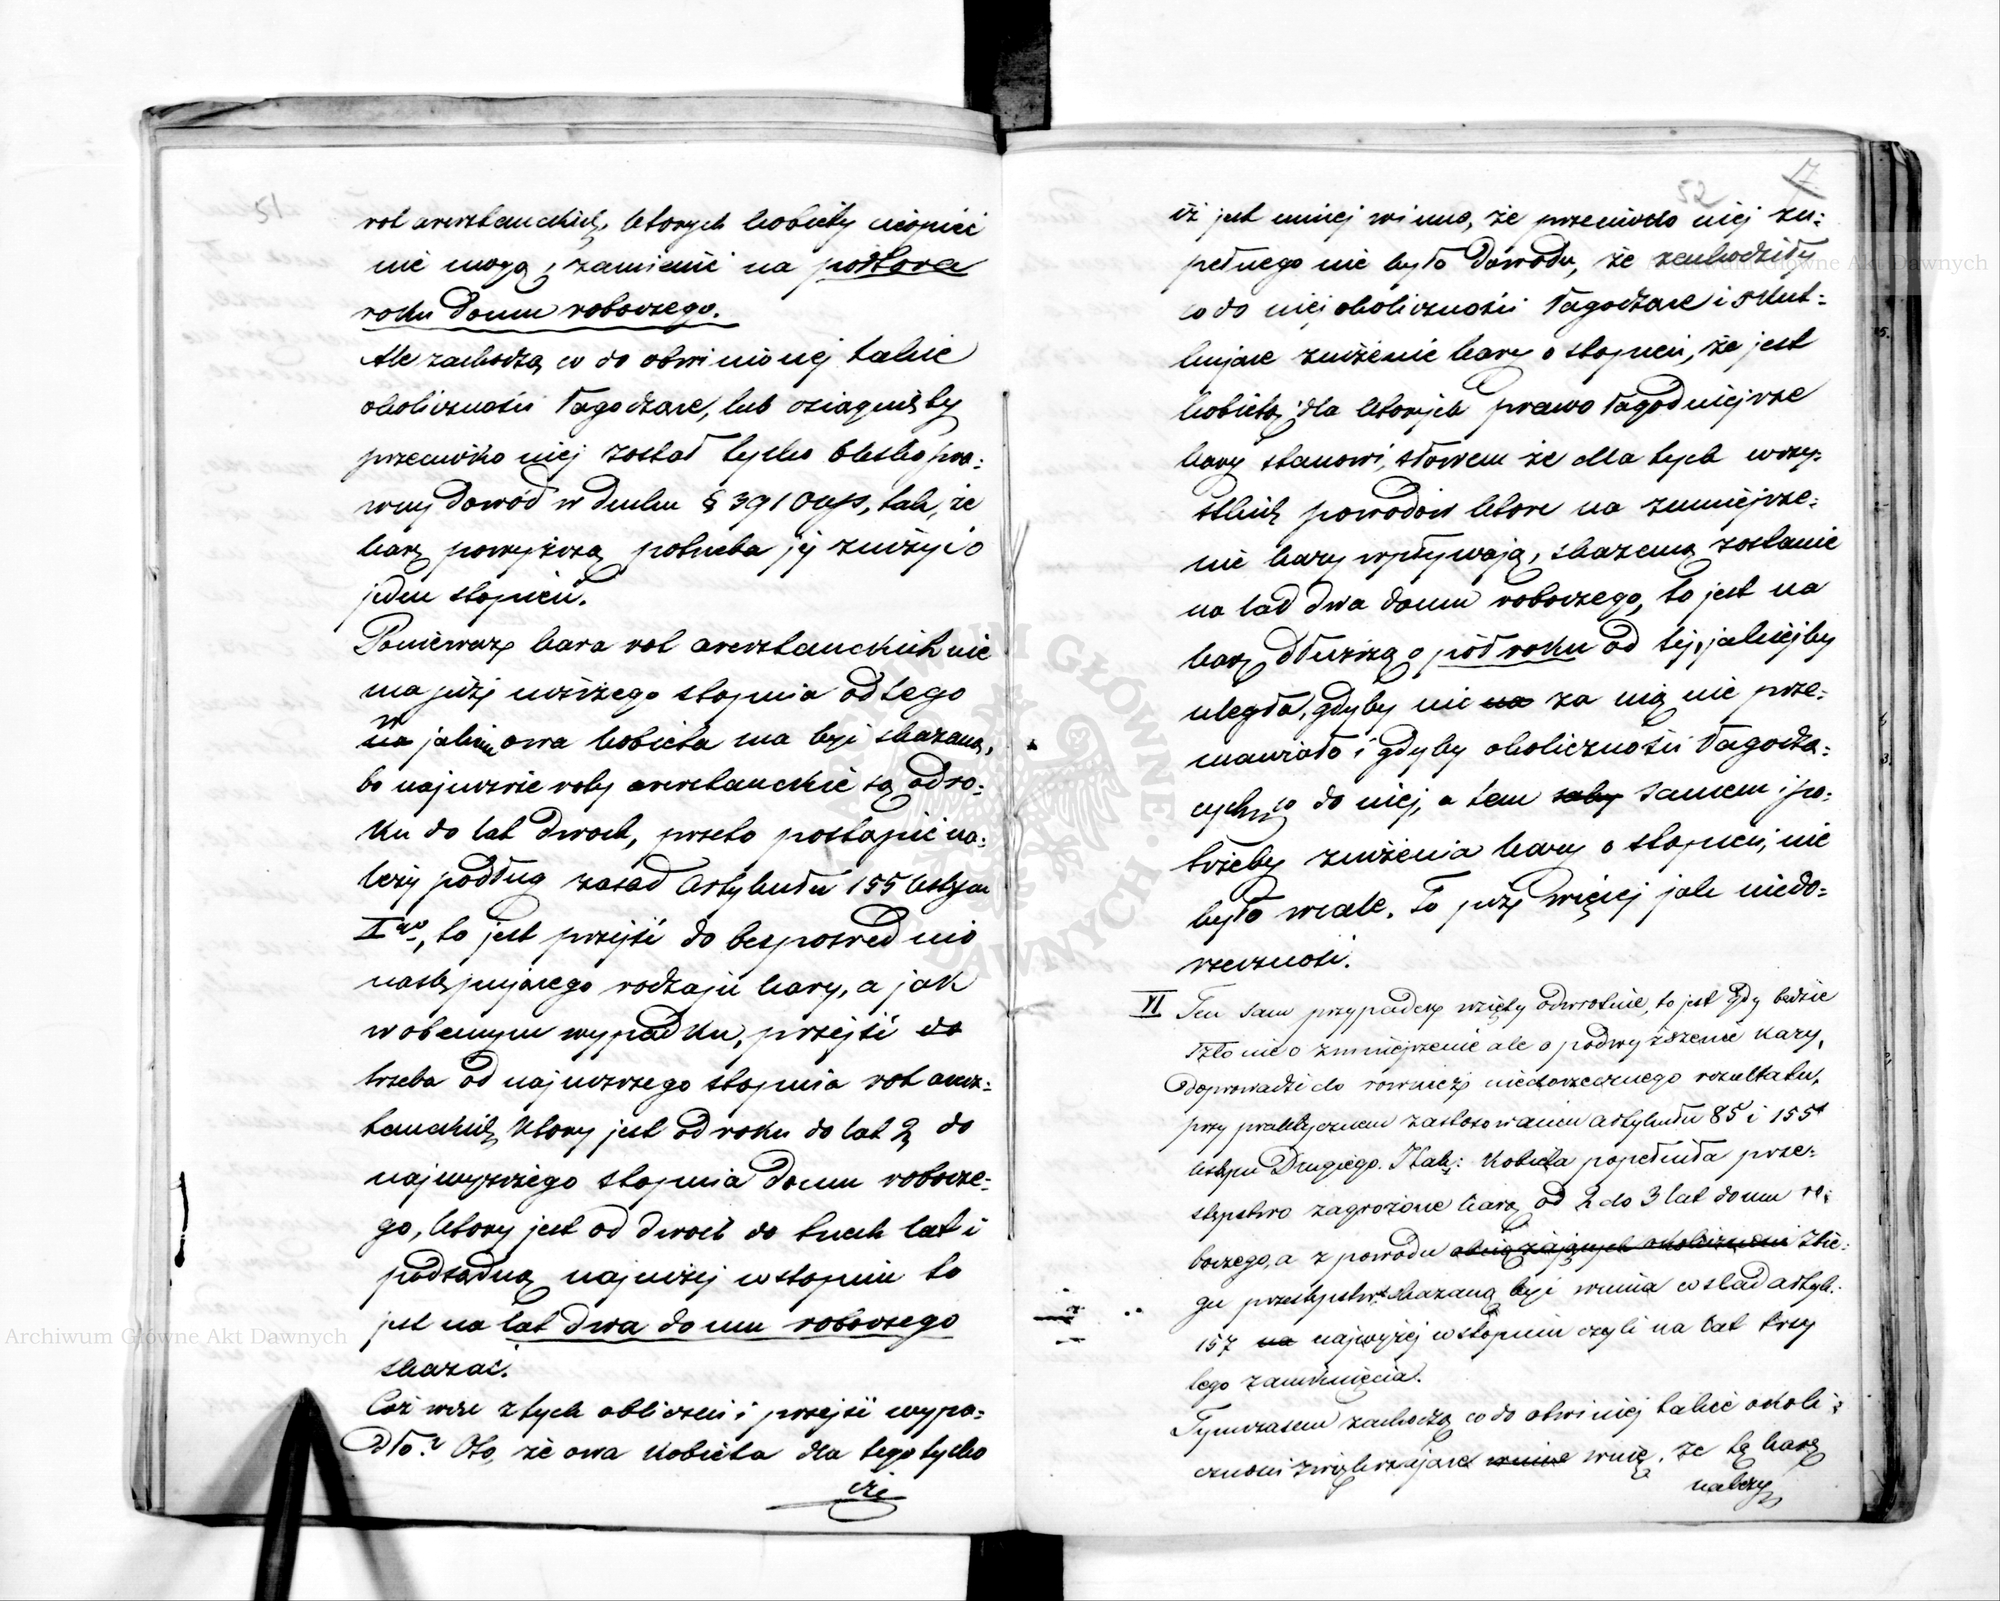 51
rot aresztanckich, których kobiety cierpieć
nie mogą, zamienić na półtora
roku domu roboczego.
Ale zachodzą co do obwinionej takie
okoliczności łagodzące, lub osiągniętby
przeciwko niej został tylko
dowód w duchu § 391 tak, że
karę powyższą potrzeba jej zniżyć o
jeden stopień.
Ponieważ kara rot aresztanckich nie
ma już niższego stopnia od tego
w
na jakim owa kobieta ma być skazaną,
bo najniższe roty aresztanckie są od ro-
ku do lat dwóch, przeto postąpić na-
leży podług zasad Artykułu 155 ustępu
II go, to jest przejść do bezpośrednio
następującego rodzaju kary, a jak
w obecnym wypadku, przejść do
trzeba od najniższego stopnia rot aresz-
tanckich, który jest od roku do lat 2, do
najwyższego stopnia domu robocze-
go, który jest od dwóch do trzech lat i
podsądną najniżej w stopniu to
jest na lat dwa domu roboczego
skazać.
Cóż więc z tych obliczeń i przejść wypa-
dło? Oto, że owa kobieta dla tego tylko
że
17
52
iż jest mniej winna, że przeciwko niej zu-
pełnego nie było dowodu, że zachodziły
co do niej okoliczności łagodzące i skut-
kujące zniżenie kary o stopień, że jest
kobietą, dla których prawo łagodniejsze
kary stanowi, słowem że dla tych wszy-
stkich powodów które na zmniejsze-
nie kary wpływają, skazaną zostanie
na lat dwa domu roboczego, to jest na
karę dłuższą o pół roku od tej, jakiejby
uległa, gdyby nic na za nią nie prze-
mawiało i gdyby okoliczności łagodzą-
cych co do niej, a tem samem i po-
trzeby zniżenia kary o stopień, nie
było wcale. To już więcej jak niedo-
rzeczność.
XI Ten sam przypadek wzięty odwrotnie, to jest gdy będzie
szło nie o zmniejszenie ale o podwyższenie kary,
doprowadzi do również niedorzecznego rezultatu,
przy praktycznem zastosowaniu artykułu 85 i 155
ustępu Drugiego. I tak: Kobieta popełniła prze-
stępstwo zagrożone karą od 2 do 3 lat domu ro-
boczego, a z powodu obciążających okoliczności zbie-
gu przestępstw skazaną być winna w ślad artyk.
157 na najwyżej w stopniu czyli na lat trzy
tego zamknięcia.
Tymczasem zachodzą co do obwinionej takie okoli-
czności zwiększające winę, że tę karę
należy